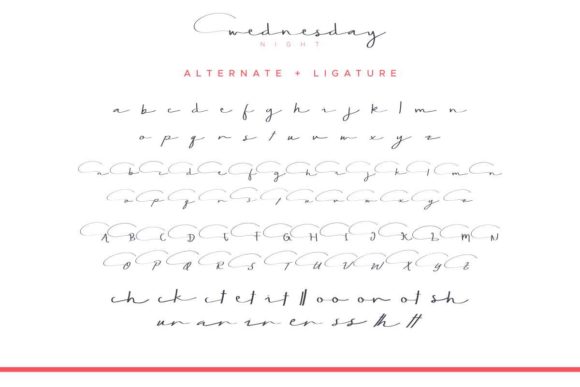 wednesday
NIGHT
ALTERNATE + LIGATURE
a b c d e f g h i j k l m n
o p q r s t u v w x y z
a b c d e f g h i j k l m n
o p q r s t u v w x y z
A B C D E F G H I J K L M N
O P Q R S T U V W X Y Z
ch ck ct et it ll oo or ot sh
ur an in er ss th tt